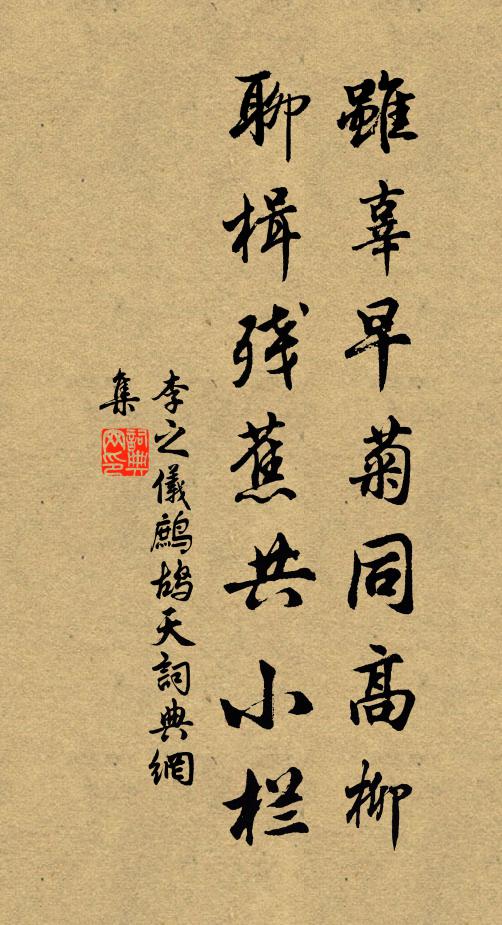 雖辜早菊同高柳
聊楫残蕉共小栏
李之儀鷓鴣天詞典網
集
詞典
网印